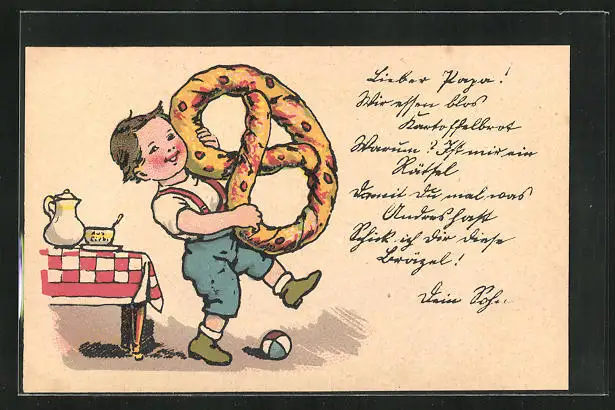 Lieber Papa!
Wir essen blos
Kartoffelbrot
Warum? Ist mir ein
Rätsel
Damit Du mal was
Andres hast
Schick ich Dir diese
Bräzel!
Dein Sohn.
Aus
Liebe